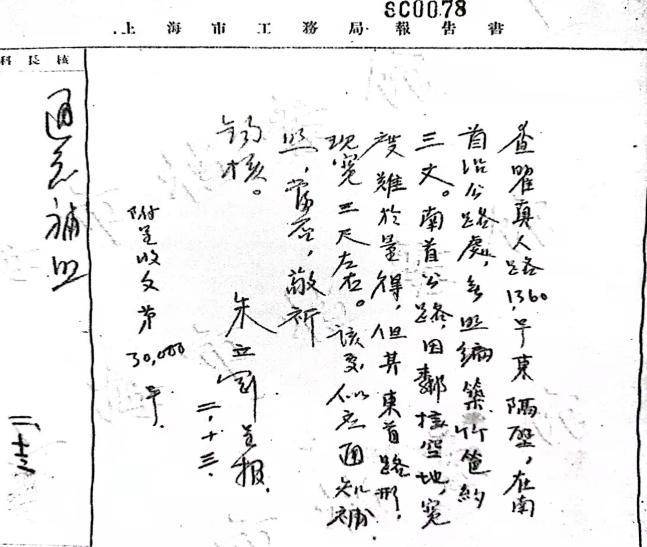 SC0078
上海市工務局報告書
科長核
查曜真人路1360号東隔壁,在南
首沿公路處,無照編築竹笆約
三丈。南首公路,因鄰接空地,寬
度難於量得,但其東首路形,
現寬三尺左右。該處似应通知補
照,當否,敬祈
鈞核。
朱立剛呈報.
二.十三.
附呈收文第30,000号.
通知補照
二.十三